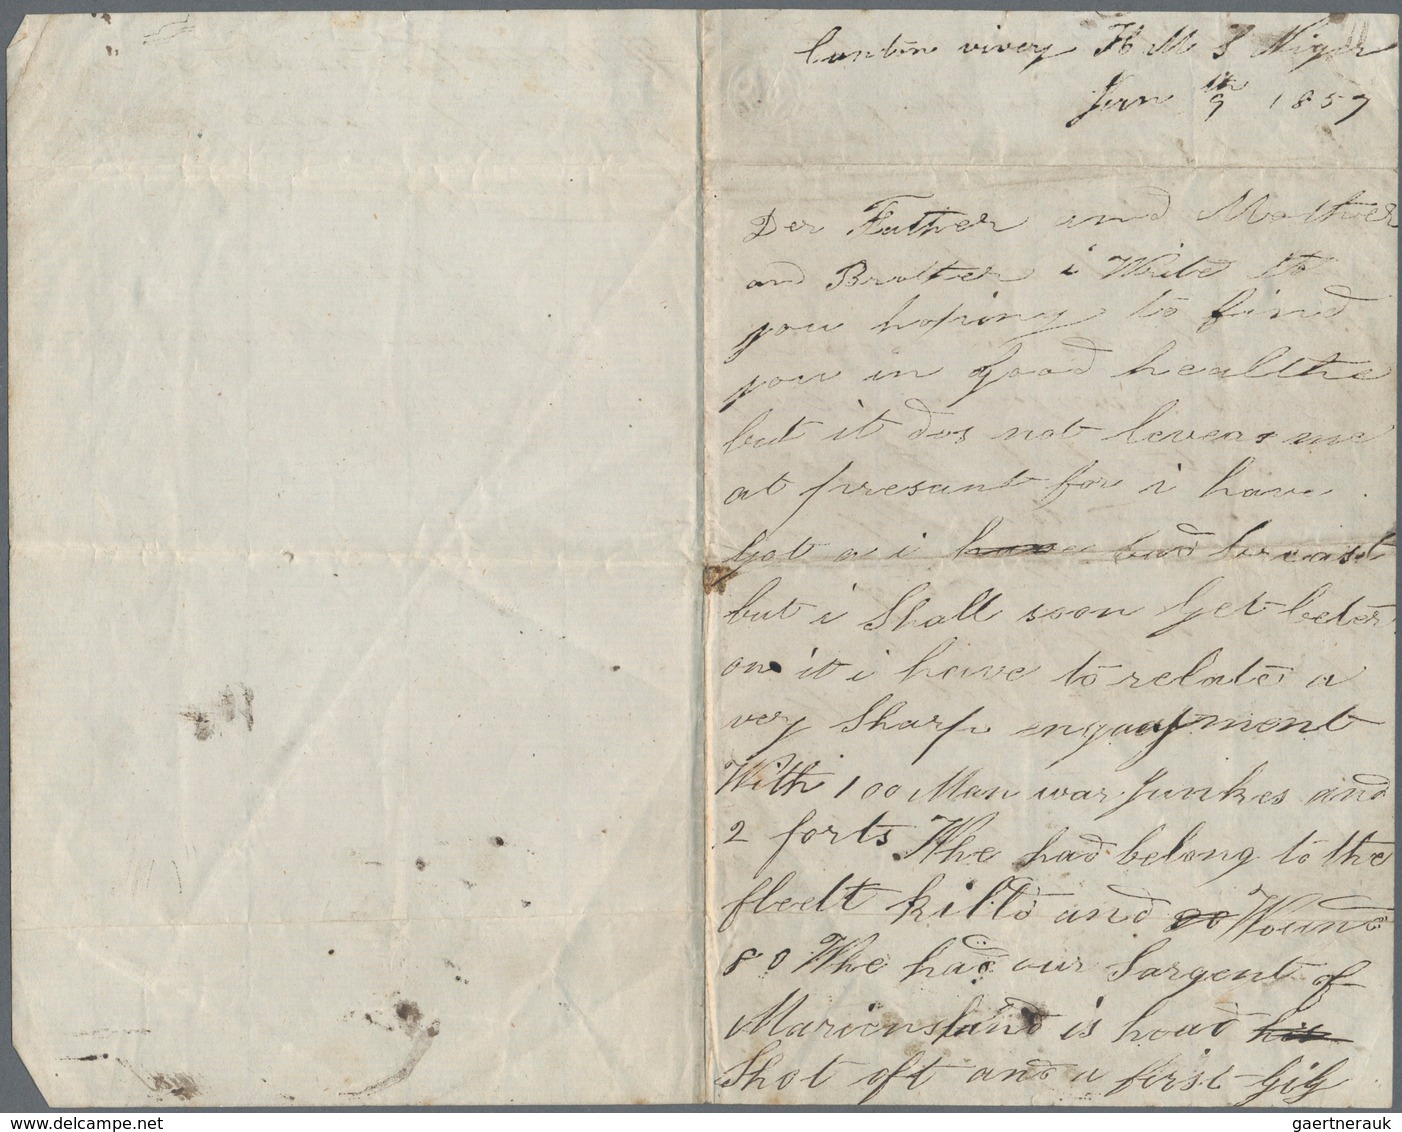 Canton river H M S Niger
Jun 9th 1857
Der Father and Mother
and Brother i Write to
you hoping to find
you in good healthe
but it dos not leveas me
at presant for i have
Got a i have bad breast
but i Shall soon Get beter
on it i have to relate a
very Sharp engaagment
With 100 Man war Junkes and
2 forts Whe had belong to the
fleelt killd and so Wound
80 Whe had our Sargent of
is head hit
Shot oft and a first Gig
gaertnerauk @ delcampe.net